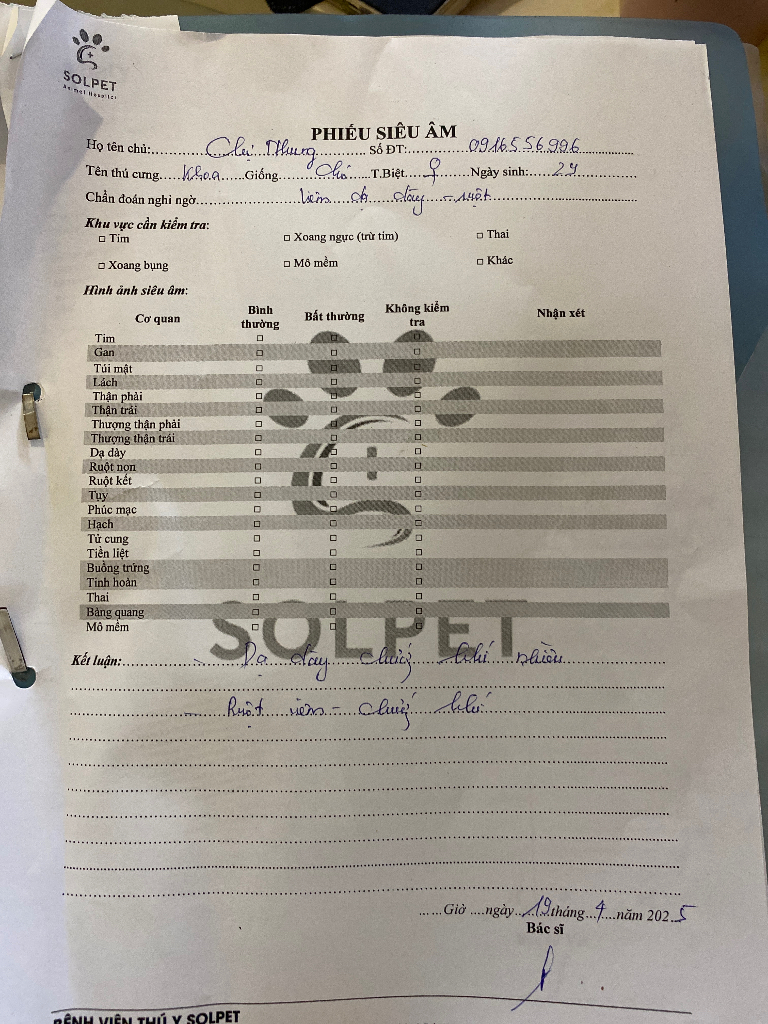 SOLPET
Animal Hospital
PHIẾU SIÊU ÂM
Họ tên chủ: Chị Nhung Số ĐT: 0916556996
Tên thú cưng Khoa Giống Chó T.Biệt ♀ Ngày sinh: 2y
Chẩn đoán nghi ngờ viêm dạ dày - ruột
Khu vực cần kiểm tra:
□ Tim □ Xoang ngực (trừ tim) □ Thai
□ Xoang bụng □ Mô mềm □ Khác
Hình ảnh siêu âm:
Cơ quan Bình thường Bất thường Không kiểm tra Nhận xét
Tim □ □ □
Gan □ □ □
Túi mật □ □ □
Lách □ □ □
Thận phải □ □ □
Thận trái □ □ □
Thượng thận phải □ □ □
Thượng thận trái □ □ □
Dạ dày □ □ □
Ruột non □ □ □
Ruột kết □ □ □
Tụy □ □ □
Phúc mạc □ □ □
Hạch □ □ □
Tử cung □ □ □
Tiền liệt □ □ □
Buồng trứng □ □ □
Tinh hoàn □ □ □
Thai □ □ □
Bàng quang □ □ □
Mô mềm □ □ □
SOLPET
Kết luận: - Dạ dày chướng khí nhiều
- Ruột viêm - chướng khí
......Giờ ....ngày 19 tháng 4 năm 2025
Bác sĩ
BỆNH VIỆN THÚ Y SOLPET